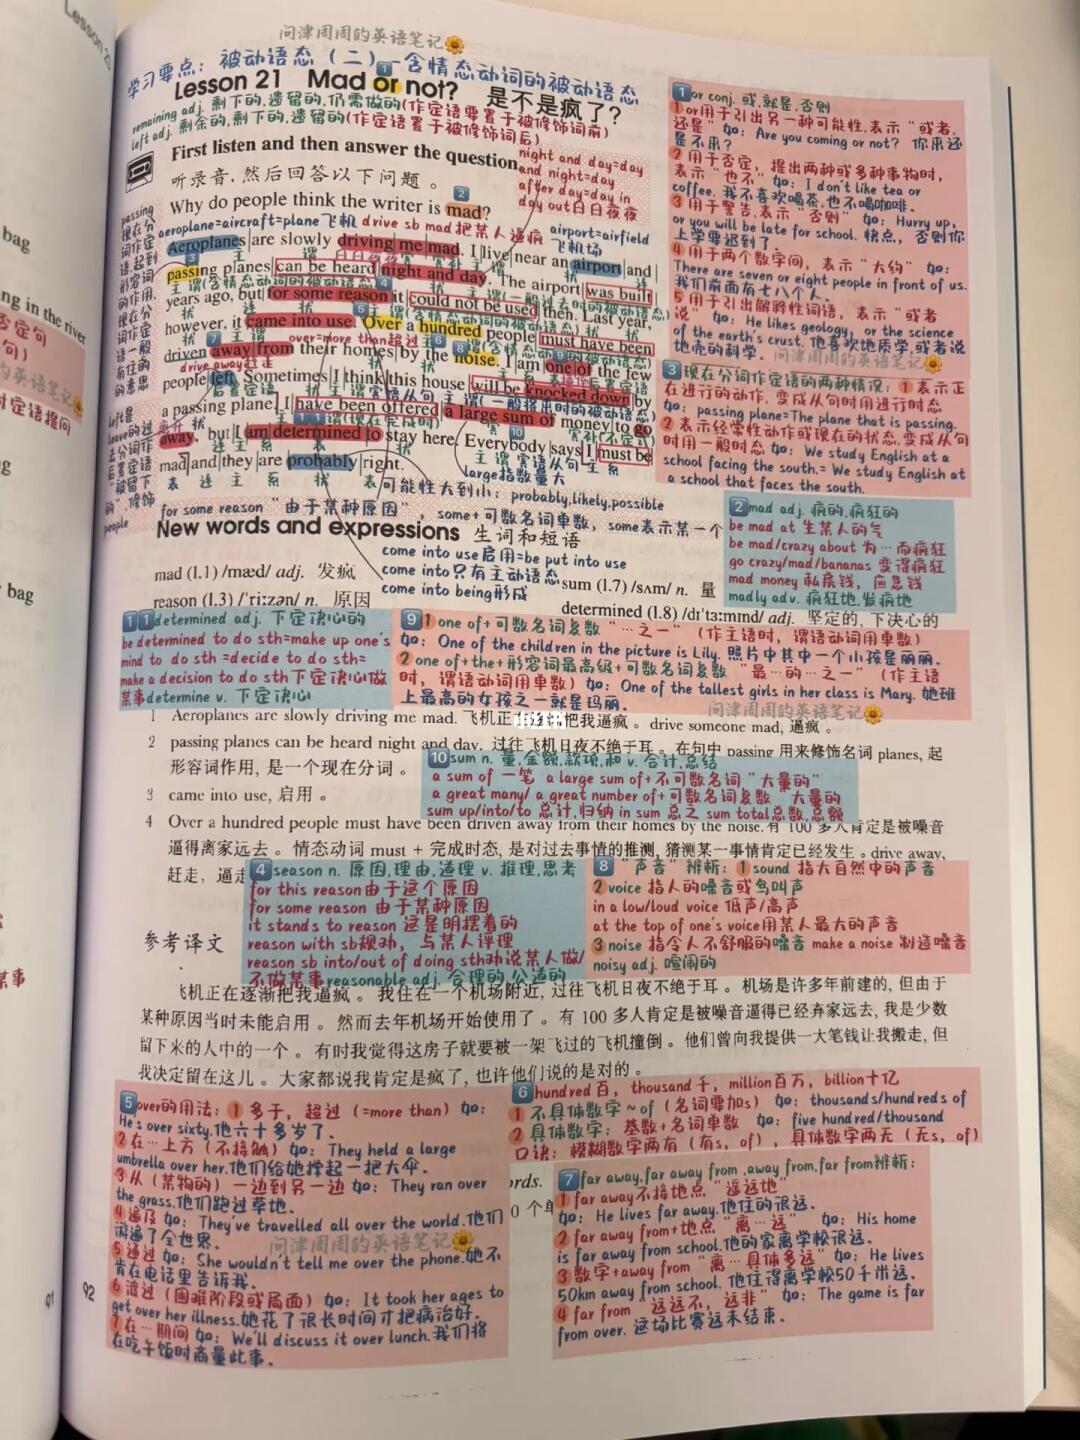 Lesson 20
问津周周的英语笔记
学习要点：被动语态（二）-含情态动词的被动语态
Lesson 21 Mad or not? 是不是疯了？
remaining adj. 剩下的,遗留的,仍需做的(作定语要置于被修饰词前)
left adj. 剩余的,剩下的,遗留的(作定语置于被修饰词后)
First listen and then answer the question.
听录音,然后回答以下问题。
night and day=day
and night=day
after day=day in
day out日日夜夜
Why do people think the writer is mad?
aeroplane=aircraft=plane飞机 drive sb mad把某人逼疯 airport=airfield
飞机场
Aeroplanes are slowly driving me mad. I live near an airport and
passing planes can be heard night and day. The airport was built
years ago, but for some reason it could not be used then. Last year,
however, it came into use. Over a hundred people must have been
over=more than超过
driven away from their homes by the noise. I am one of the few
drive away赶走
people left. Sometimes I think this house will be knocked down by
a passing plane. I have been offered a large sum of money to go
away, but I am determined to stay here. Everybody says I must be
mad and they are probably right.
large指数量大
可能性大到小：probably,likely,possible
for some reason "由于某种原因", some+可数名词单数, some表示某一个
passing
现在分
词作定
语,起到
形容词
的作用.
现在分
词作定
语一般
有主动
的意思
New words and expressions 生词和短语
come into use启用=be put into use
come into只有主动语态
come into being形成
mad (l.1) /mæd/ adj. 发疯
reason (l.3) /ˈriːzən/ n. 原因
sum (l.7) /sʌm/ n. 量
determined (l.8) /dɪˈtɜːmɪnd/ adj. 坚定的,下决心的
1 or conj. 或,就是,否则
1 or用于引出另一种可能性,表示"或者,
还是" 如：Are you coming or not? 你来还
是不来?
2 用于否定, 提出两种或多种事物时,
表示"也不" 如：I don't like tea or
coffee. 我不喜欢喝茶,也不喝咖啡.
3 用于警告,表示"否则" 如：Hurry up,
or you will be late for school. 快点, 否则你
上学要迟到了
4 用于两个数字间, 表示"大约" 如：
There are seven or eight people in front of us.
我们前面有七八个人.
5 用于引出解释性词语, 表示"或者
说" 如：He likes geology, or the science
of the earth's crust. 他喜欢地质学,或者说
地壳的科学. 问津周周的英语笔记
3 现在分词作定语的两种情况：1 表示正
在进行的动作, 变成从句时用进行时态
如：passing plane=The plane that is passing.
2 表示经常性动作或现在的状态.变成从句
时用一般时态 如：We study English at a
school facing the south.= We study English at
a school that faces the south.
2 mad adj. 疯的,疯狂的
be mad at 生某人的气
be mad/crazy about 为…而疯狂
go crazy/mad/bananas 变得疯狂
mad money 私房钱, 应急钱
madly adv. 疯狂地,发疯地
11 determined adj. 下定决心的
be determined to do sth=make up one's
mind to do sth =decide to do sth=
make a decision to do sth下定决心做
某事determine v. 下定决心
9 1 one of+可数名词复数 "…之一" (作主语时, 谓语动词用单数)
如：One of the children in the picture is Lily. 照片中其中一个小孩是丽丽.
2 one of+the+形容词最高级+可数名词复数 "最…的…之一" (作主语
时, 谓语动词用单数) 如：One of the tallest girls in her class is Mary. 她班
上最高的女孩之一就是玛丽.
问津周周的英语笔记
1 Aeroplanes are slowly driving me mad. 飞机正把我逼疯。drive someone mad, 逼疯。
2 passing planes can be heard night and day. 过往飞机日夜不绝于耳。在句中 passing 用来修饰名词 planes, 起
形容词作用, 是一个现在分词。
10 sum n. 量,金额,款项,和 v. 合计,总结
a sum of 一笔 a large sum of+不可数名词 "大量的"
a great many/ a great number of+可数名词复数 "大量的
sum up/into/to 总计,归纳 in sum 总之 sum total总数,总额
3 came into use, 启用。
4 Over a hundred people must have been driven away from their homes by the noise. 有 100 多人肯定是被噪音
逼得离家远去。情态动词 must + 完成时态, 是对过去事情的推测, 猜测某一事情肯定已经发生。drive away,
赶走, 逼走
4 season n. 原因,理由,道理 v. 推理,思考
for this reason由于这个原因
for some reason 由于某种原因
it stands to reason 这是明摆着的
reason with sb规劝, 与某人评理
reason sb into/out of doing sth劝说某人做/
不做某事reasonable adj. 合理的,公道的
8 "声音"辨析：1 sound 指大自然中的声音
2 voice 指人的嗓音或鸟叫声
in a low/loud voice 低声/高声
at the top of one's voice用某人最大的声音
3 noise 指令人不舒服的噪音 make a noise 制造噪音
noisy adj. 喧闹的
参考译文
飞机正在逐渐把我逼疯。我住在一个机场附近, 过往飞机日夜不绝于耳。机场是许多年前建的, 但由于
某种原因当时未能启用。然而去年机场开始使用了。有 100 多人肯定是被噪音逼得已经弃家远去, 我是少数
留下来的人中的一个。有时我觉得这房子就要被一架飞过的飞机撞倒。他们曾向我提供一大笔钱让我搬走, 但
我决定留在这儿。大家都说我肯定是疯了, 也许他们说的是对的。
5 over的用法：1 多于, 超过 (=more than) 如：
He's over sixty.他六十多岁了.
2 在…上方 (不接触) 如：They held a large
umbrella over her.他们给她撑起一把大伞.
3 从 (某物的) 一边到另一边 如：They ran over
the grass.他们跑过草地.
4 遍及 如：They've travelled all over the world.他们
游遍了全世界.
问津周周的英语笔记
5 通过 如：She wouldn't tell me over the phone.她不
肯在电话里告诉我.
6 渡过 (困难阶段或局面) 如：It took her ages to
get over her illness.她花了很长时间才把病治好.
7 在…期间 如：We'll discuss it over lunch.我们将
在吃午饭时商量此事.
6 hundred 百, thousand 千, million百万, billion十亿
1 不具体数字~of (名词要加s) 如：thousands/hundreds of
2 具体数字：基数+名词单数 如：five hundred/thousand
口诀：模糊数字两有 (有s, of) , 具体数字两无 (无s, of)
7 far away,far away from ,away from,far from辨析：
1 far away不接地点 "遥远地"
如：He lives far away.他住的很远.
2 far away from+地点 "离…远" 如：His home
is far away from school.他的家离学校很远.
3 数字+away from "离…具体多远" 如：He lives
50km away from school. 他住得离学校50千米远.
4 far from "远远不, 远非" 如：The game is far
from over. 这场比赛远未结束.
92
91